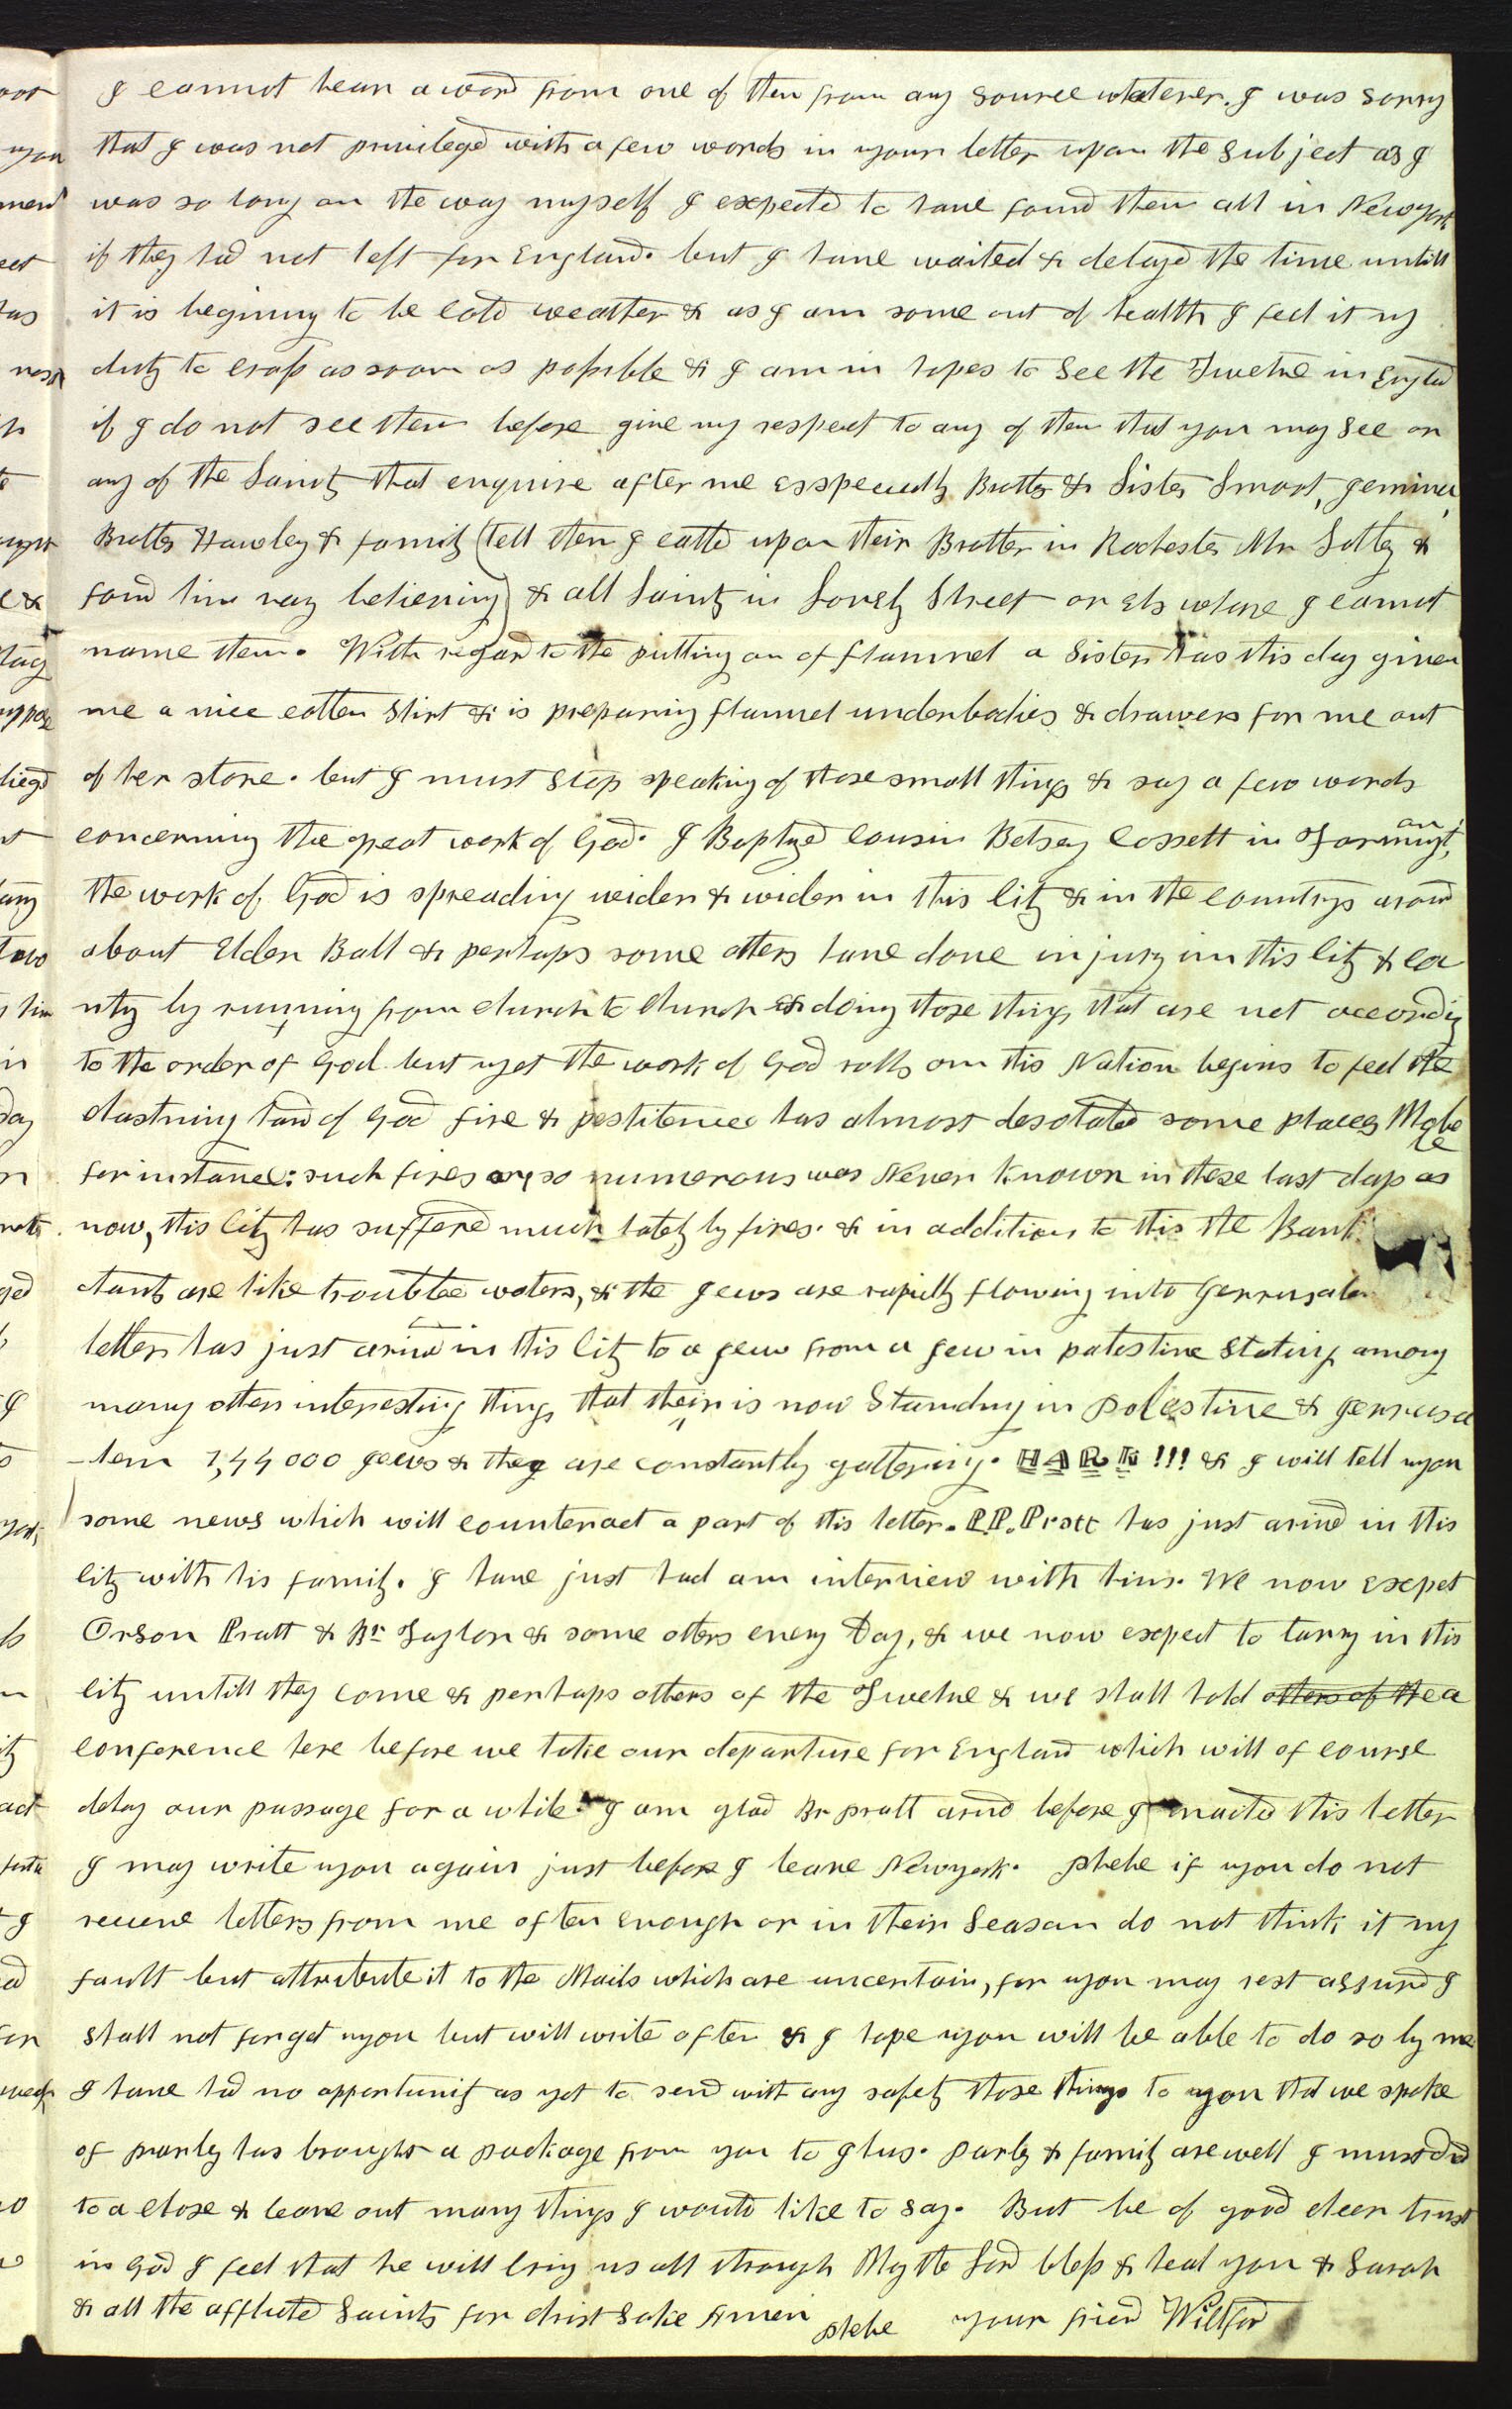 I cannot hear a word from one of them from any source whatever. I was sorry
that I was not privileged with a few words in your letter upon the subject as I
was so long on the way myself I expected to have found them all in Newyork
if they had not left for England. but I have waited & delayd the time untill
it is begining to be cold weather & as I am some out of health I feel it my
duty to cross as soon as possible & I am in hopes to see the Twelve in Englad
if I do not see them before give my respect to any of them that you may see or
any of the Saints that enquire after me esspecially Brother & Sister Smoot, Jemima,
Brother Hawley & family (tell them I calld upon their Brother in Rochester Mr
found him vary believing) & all Saints in Street or els whare I cannot
name them. With regard to the putting on of flannel a Sister has this day given
me a nice cotten Shirt & is prepareing flannel underbodies & drawers for me out
of her store. but I must stop speaking of those small things & say a few words
concerning the great work of God. I Baptized cousin Betsey Cossett in Farmingt,
an
the work of God is spreading wider & wider in this City & in the countrys around
about Elder Ball & perhaps some others have done injury in this city & co
unty by running from church to church & doing those things that are not according
to the order of God but yet the work of God rolls on this Nation begins to feel the
chastning hand of God fire & pestilence has almost desolated some places Mobe
le
for instance: such fires so numerous was Never known in these last days as
now, this City has sufferd much lately by fires. & in addition to this the Bank
chants are like troubled waters, & the Jews are rapidly flowing into Jerrusalem
letter has just arived in this City to a Jew from a Jew in palestine Stating among
many other interesting things that their is now Standing in Palestine & Jerrusa
-lem 1,44000 Jews & they are constantly gathering. HARK !!! & I will tell you
some news which will counteract a part of this letter. P.P. Pratt has just arived in this
City with his family. I have just had an interview with him. We now expet
Orson Pratt & Br Taylor & some others every Day, & we now expect to tarry in this
City untill they come & perhaps others of the Twelve & we shall hold others of the a
conference here before we take our departure for England which will of course
delay our passage for a while. I am glad Br pratt arivd before I maild this letter
I may write you again just before I leave Newyork. phebe if you do not
receive letters from me often enough or in their Season do not think it my
fault but attribute it to the Mails which are uncertain, for you may rest assurd I
shall not forget you but will write often & I hope you will be able to do so by me
I have had no opportunity as yet to send with any safety those things to you that we spoke
of parley has brought a package from you to Ilus. Parley & family are well I must
to a close & leave out many things I would like to say. But be of good cheer trust
in God I feel that he will bring us all through May the Lord bless & heal you & Sarah
& all the afflicted Saints for christ sake Amen phebe your friend Willford